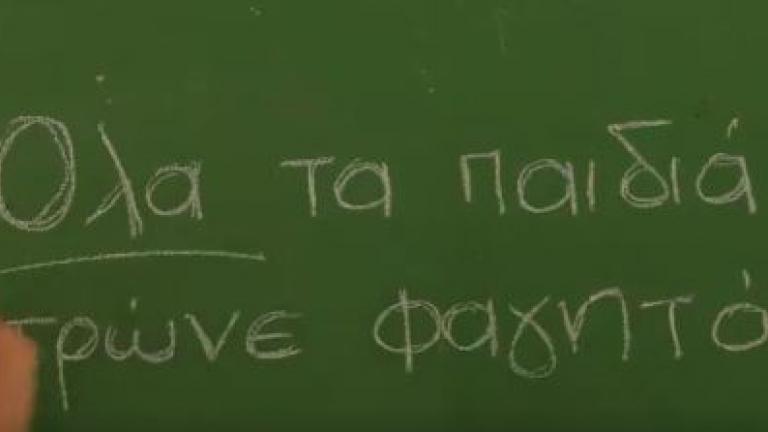 Όλα τα παιδιά
τρώνε φαγητό